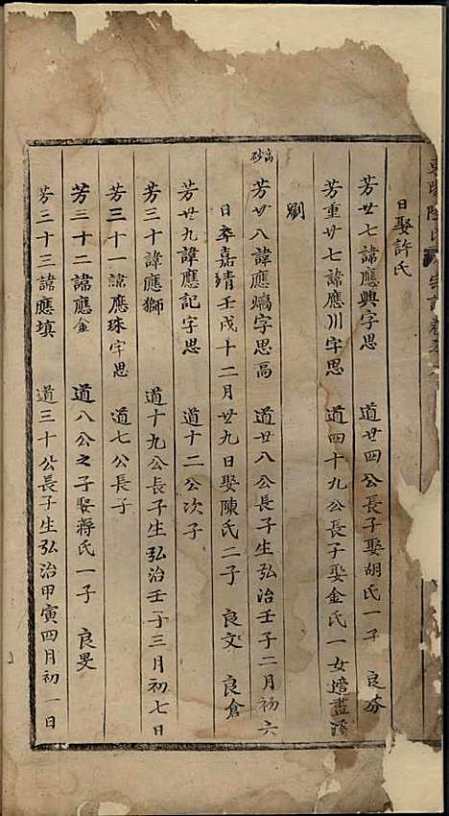 日娶許氏
芳廿七諱應興字思 道廿四公長子娶胡氏一子 良芬
芳重廿七諱應川字思 道四十九公長子娶金氏一女嫁盧溪
劉
芳廿八諱應熇字思高 道廿八公長子生弘治壬子二月初六
日卒嘉靖壬戌十二月廿九日娶陳氏二子 良文 良倉
芳廿九諱應記字思 道十二公次子
芳三十諱應獅 道十九公長子生弘治壬子三月初七日
芳三十一諱應珠字思 道七公長子
芳三十二諱應金 道八公之子娶蔣氏一子 良旻
芳三十三諱應填 道三十公長子生弘治甲寅四月初一日